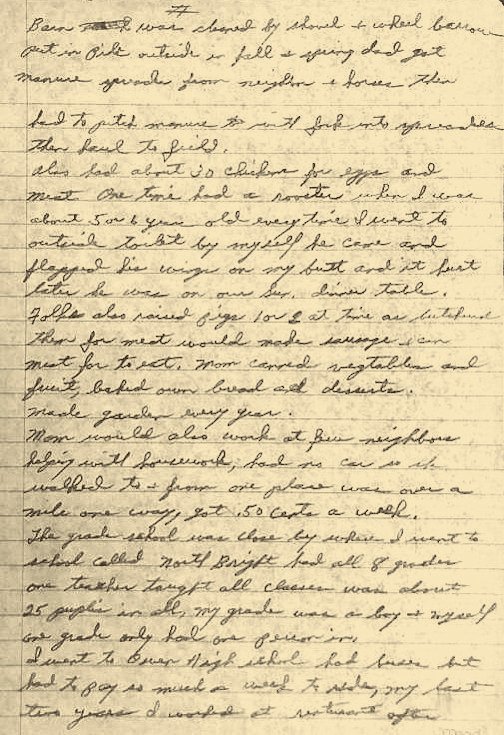 Barn was cleaned by shovel & wheel barrow
put in pile outside in fall & spring dad got
manure spreader from neighbor & horses then
had to pitch manure with fork into spreader
then haul to field.
Also had about 30 chickens for eggs and
meat. One time had a rooster when I was
about 5 or 6 year old everytime I went to
outside toilet by myself he came and
flapped his wings on my butt and it hurt
later he was on our Sun. dinner table.
Folks also raised pigs 1 or 2 at time as butchered
them for meat would made sausage & can
meat for to eat. Mom canned vegtables and
fruit, baked own bread and desserts.
Made garden every year.
Mom would also work at few neighbors
helping with housework, had no car so she
walked to & from one place was over a
mile one way, got .50 cents a week.
The grade school was close by where I went to
school called North Bright had all 8 grades
one teacher taught all classes was about
25 pupils in all, my grade was a boy & myself
one grade only had one person in.
I went to Owen High school had buses but
had to pay so much a week to ride, my last
two years I worked at resturant after